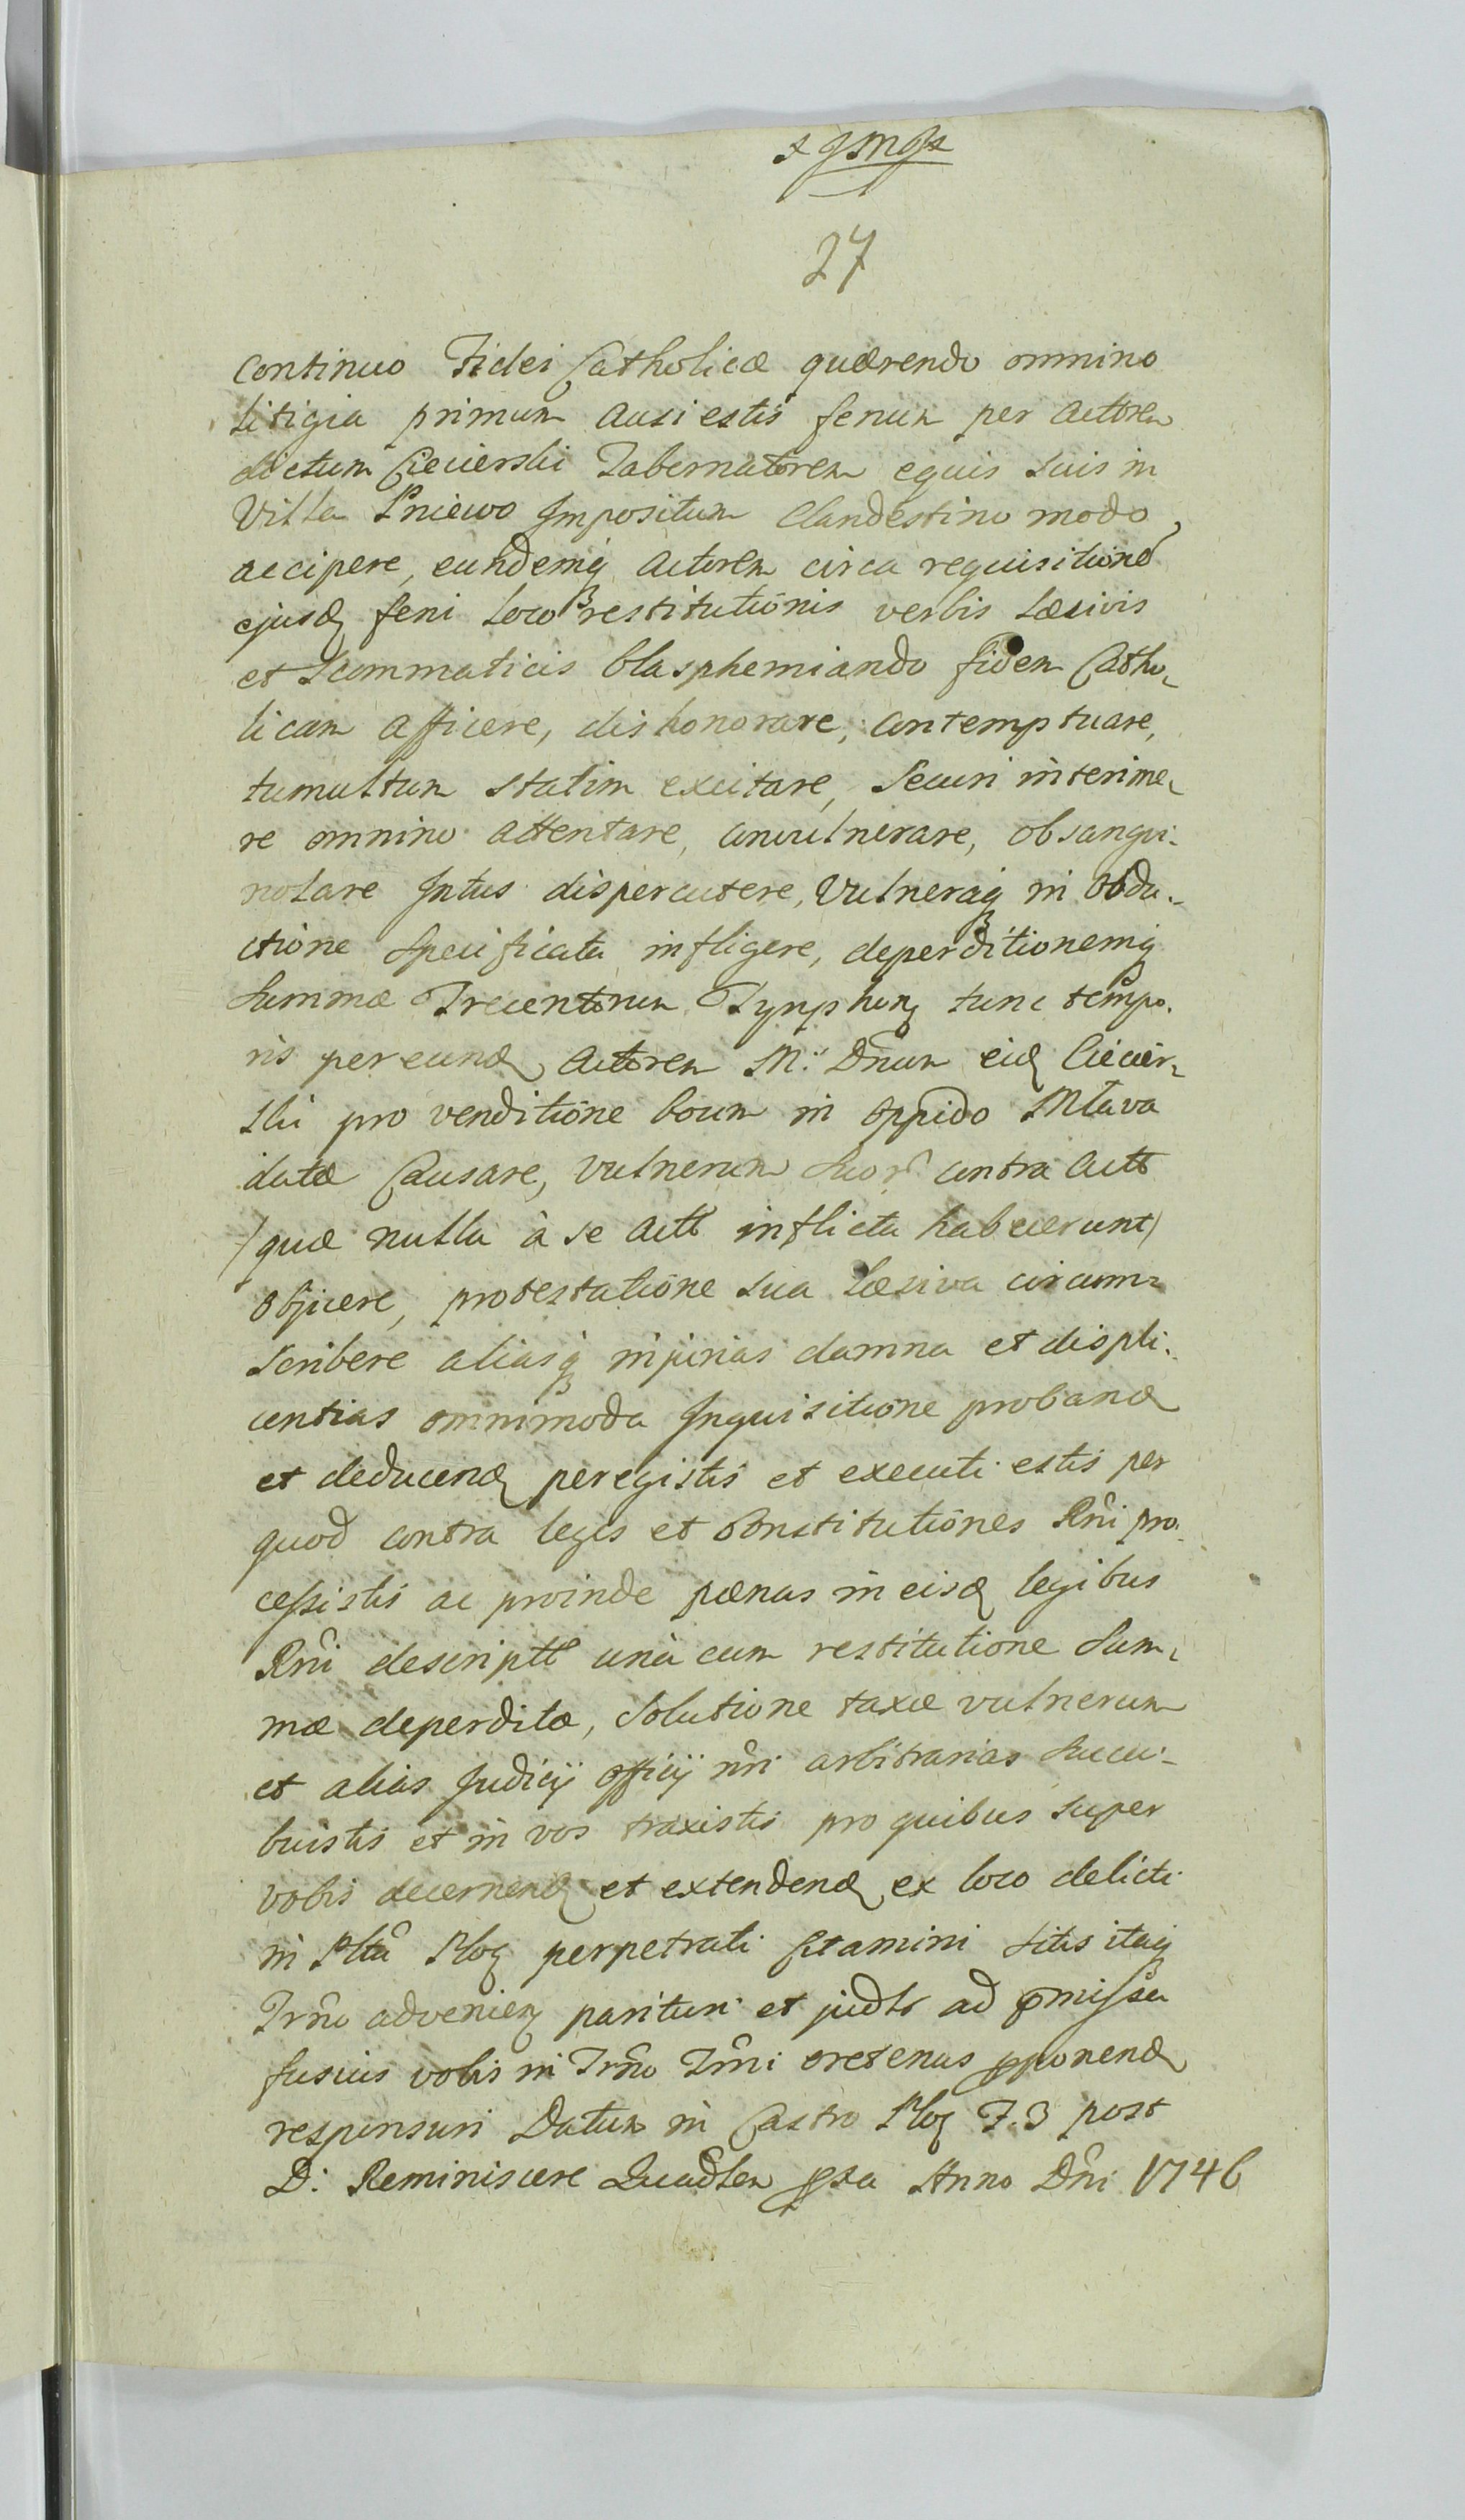 27
continuo Fidei Catholicæ quærendo omnino
litigia primum ausi estis fenum per actorem
dictum Ciecierski Tabernatorem equis suis in
Villa Pniewo Impositum clandestino modo,
accipere, eundemq actorem circa requisitione
ejusd feni loco restitutionis verbis læsivis
et scommaticis blasphemiando fidem Catho-
licam afficere, dishonorare, contemptuare,
tumultum statim excitare, securi interime-
re omnino attentare, convulnerare, obsangvi-
nolare Intus dispercutere, Vulneraq in obdu-
ctione specificata infligere, deperditionemq
summæ Trecentorum Tynphonq tunc tempo-
ris per eund actorem M: Dnum eid Ciecier-
ski pro venditione boum in oppido Mlava
datæ Causare, vulnerum suor contra actt
/quæ nulla à se actt inflicta habuerunt/
objicere, protestatione sua læsiva circum-
scribere aliasq injurias damna et displi-
centias omnimoda Inquisitione proband
et deducend peregistis et executi estis per
quod contra leges et Constitutiones Rni pro-
cessistis ac proinde pænas in eisd legibus
Rni descriptt unà cum restitutione sum-
mæ deperditæ, solutione taxæ vulnerum
et alias Judicij officij nri arbitrarias succu-
buistis et in vos traxistis pro quibus super
vobis decernend et extendend ex loco delicti
in Pltu Ploc perpetrati citamini sitis itaq
Trno advenien parituri et judtr ad pmissa
fusius vobis in Trno Tmi oretenus pponend
responsuri Datum in Castro Ploc F. 3 post
D: Reminiscere Quadlem pxa Anno Dni 1746